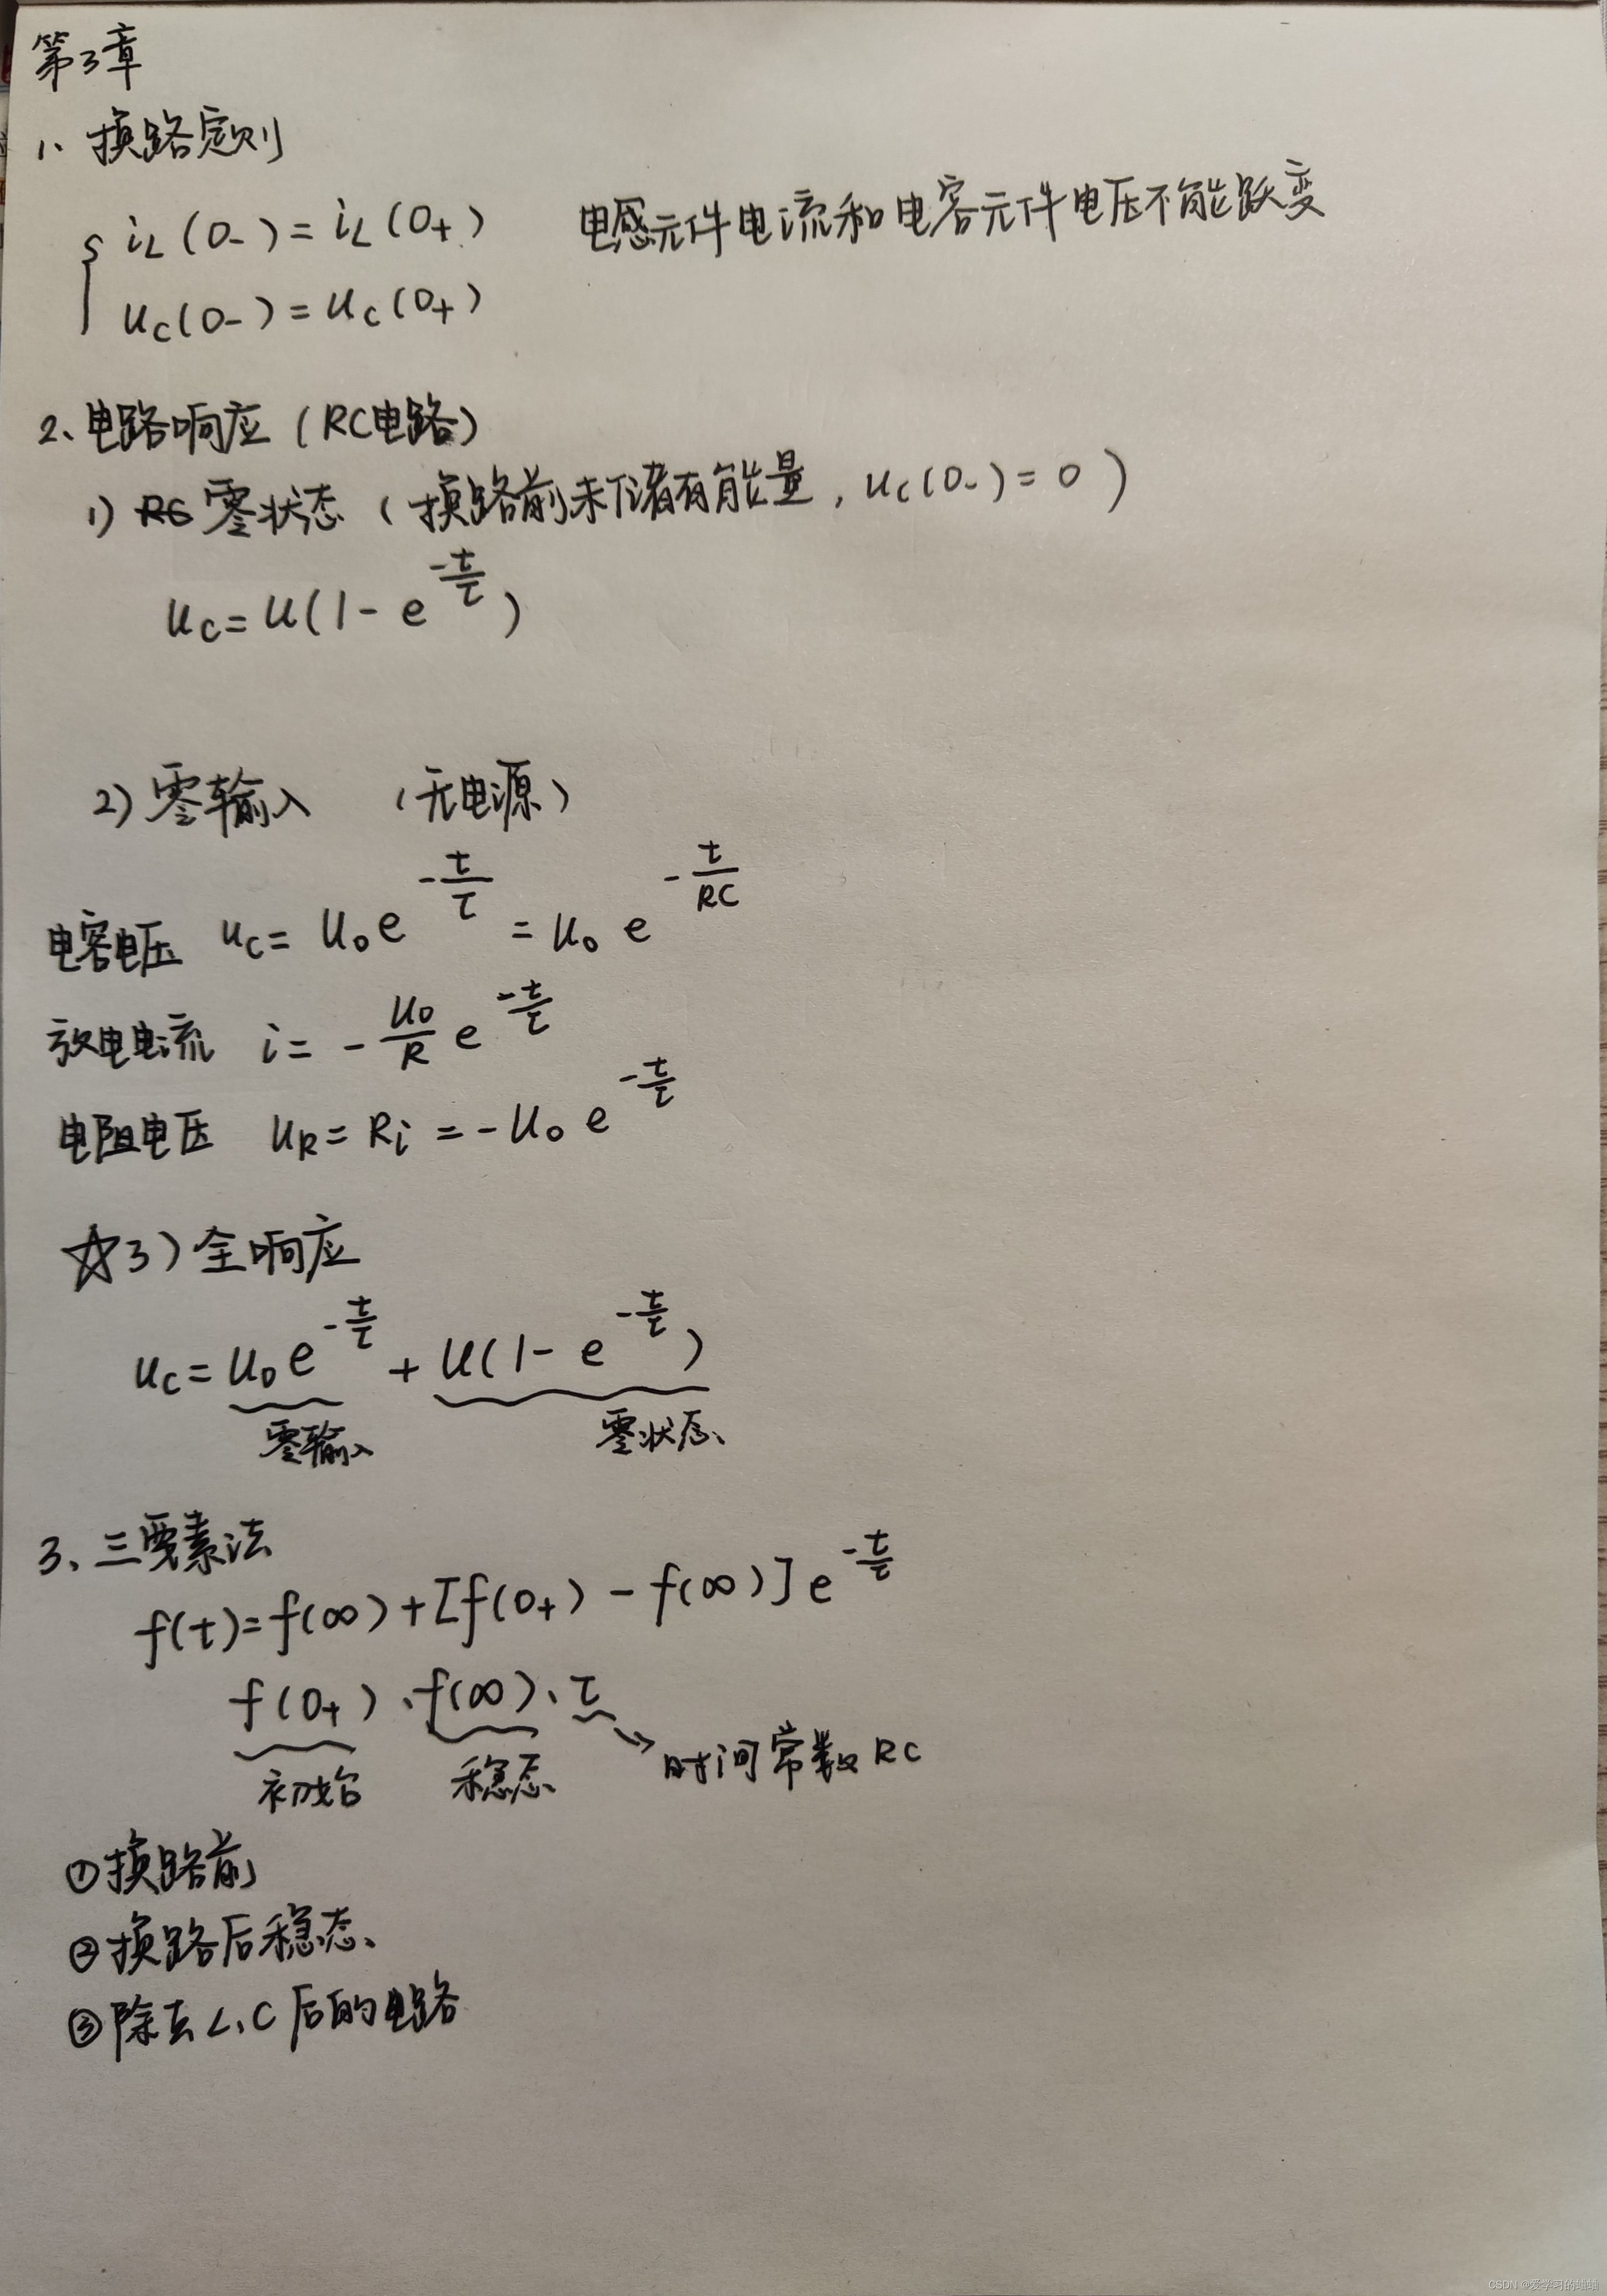 第3章
1、换路定则
iL(0-)=iL(0+) 电感元件电流和电容元件电压不能跃变
uc(0-)=uc(0+)
2、电路响应(RC电路)
1) 零状态(换路前未储有能量,uc(0-)=0)
uc=U(1-e^(-t/τ))
2) 零输入 (无电源)
电容电压 uc=U0e^(-t/τ)=U0e^(-t/RC)
放电电流 i=-U0/R e^(-t/τ)
电阻电压 uR=Ri=-U0e^(-t/τ)
☆3) 全响应
uc=U0e^(-t/τ)+U(1-e^(-t/τ))
零输入 零状态
3、三要素法
f(t)=f(∞)+[f(0+)-f(∞)]e^(-t/τ)
f(0+)、f(∞)、τ
初始 稳态 时间常数RC
①换路前
②换路后稳态
③除去L、C后的电路
CSDN @爱学习的蛐蛐